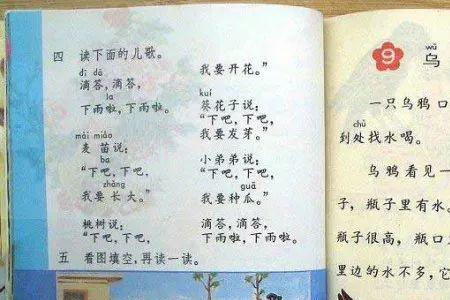 四 读下面的儿歌。
dī dā
滴答，滴答，
la
下雨啦，下雨啦。
mài miáo
麦苗说：
ba
“下吧，下吧，
zhǎng
我要长大。”
桃树说：
“下吧，下吧，
我要开花。”
kuí
葵花子说：
“下吧，下吧，
我要发芽。”
小弟弟说：
“下吧，下吧，
guā
我要种瓜。”
滴答，滴答，
下雨啦，下雨啦。
五 看图填空，再读一读。
wū
9 乌
一只乌鸦口
chù
到处找水喝。
乌鸦看见一
子，瓶子里有水。
瓶子很高，瓶口
里边的水不多，它